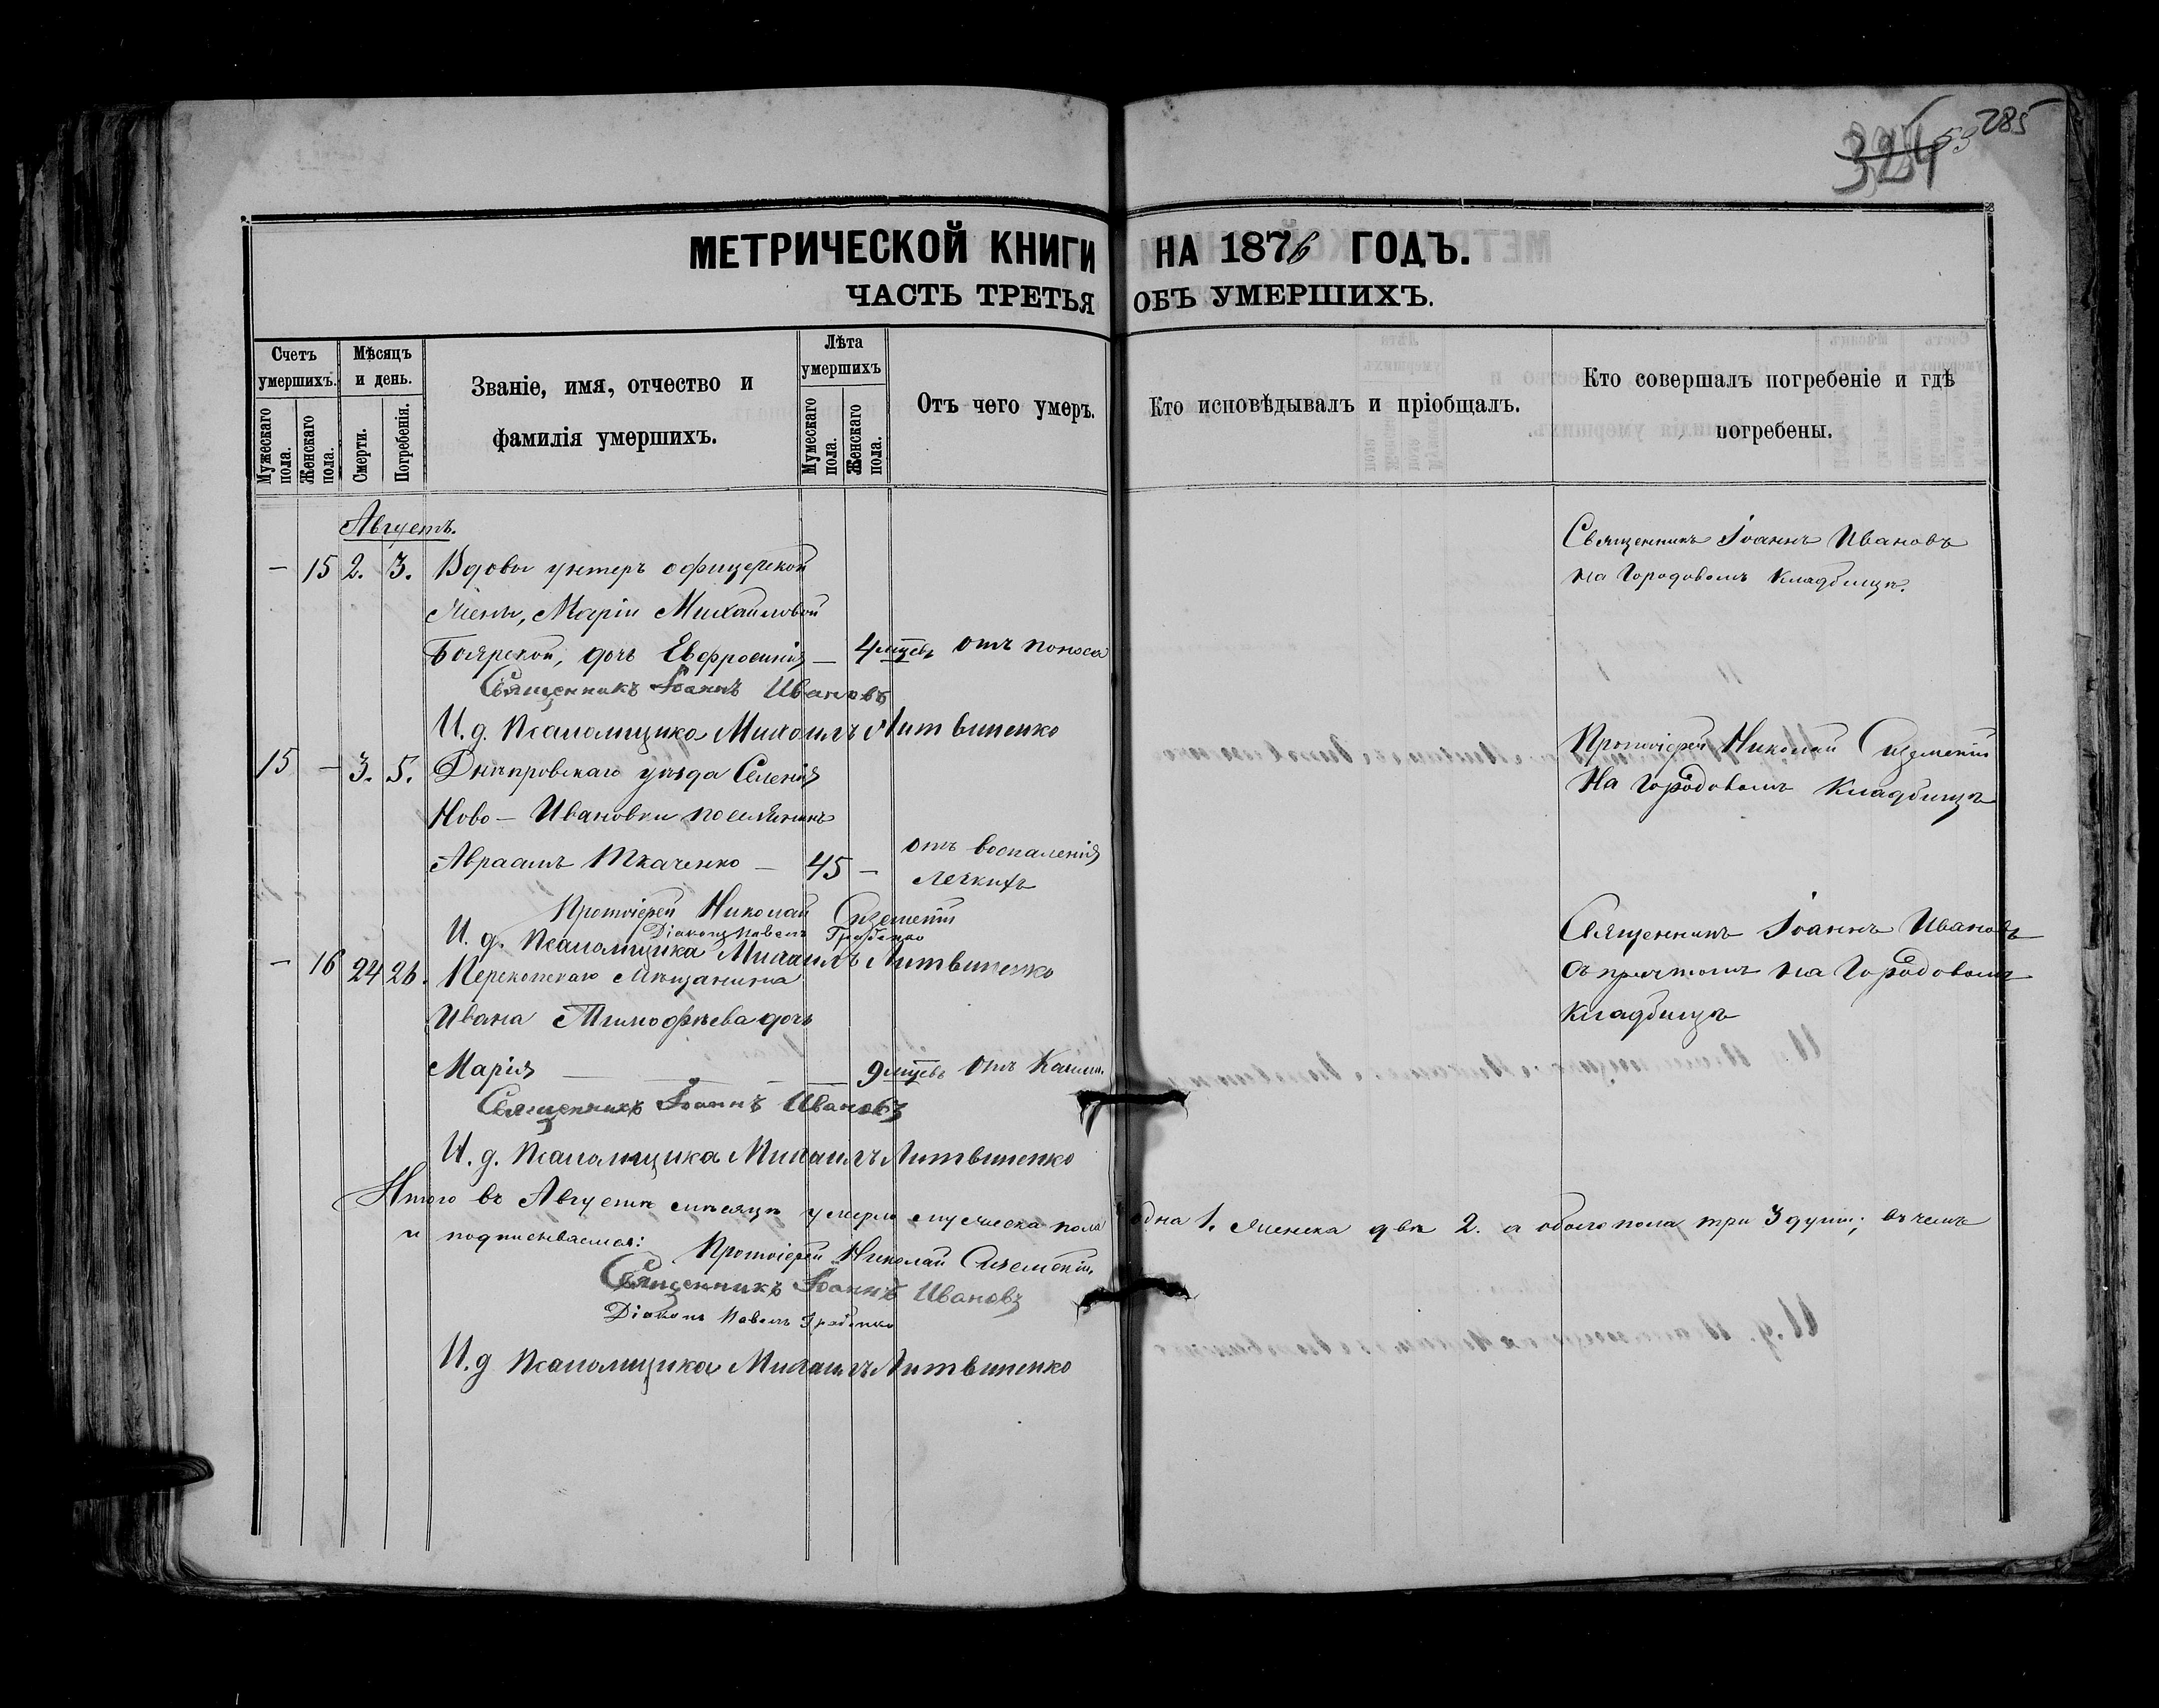 324 53 285
МЕТРИЧЕСКОЙ КНИГИ НА 1876 ГОДЪ.
ЧАСТЬ ТРЕТЬЯ ОБЪ УМЕРШИХЪ.
Счетъ умершихъ.
Мужескаго пола.
Женскаго пола.
Мѣсяцъ и день.
Смерти.
Погребенія.
Званіе, имя, отчество и
фамилія умершихъ.
Лѣта умершихъ
Мужескаго пола.
Женскаго пола.
Отъ чего умеръ.
Кто исповѣдывалъ и пріобщалъ.
Кто совершалъ погребеніе и гдѣ
погребены.
Августъ.
— 15 2. 3. Вдовы унтеръ офицерской
жены, Маріи Михайловой
Боярской, дочь Евфросинія — 4 мцевъ отъ поноса
Священникъ Іоаннъ Ивановъ
на Городовомъ Кладбищѣ.
Священникъ Іоаннъ Ивановъ
И. д. Псаломщика Михаилъ Литвиненко
15 — 3. 5. Днѣпровскаго уѣзда Селенія
Ново-Ивановки поселянинъ
Авраамъ Ткаченко — 45 — отъ воспаленія
легкихъ
Протоіерей Николай
На Городовомъ Кладбищѣ
Протоіерей Николай
Діаконъ Павелъ
И. д. Псаломщика Михаилъ Литвиненко
— 16 24 26. Перекопскаго Мѣщанина
Ивана Тимофѣева дочь
Марія — 9 мцевъ отъ Кашля.
Священникъ Іоаннъ Ивановъ
съ причтомъ на Городовомъ
Кладбищѣ
Священникъ Іоаннъ Ивановъ
И. д. Псаломщика Михаилъ Литвиненко
Итого въ Августѣ мѣсяцѣ умерло мужеска пола одна 1. женска двѣ 2. а обоего пола три 3 души; въ чемъ
и подписываемся: Протоіерей Николай
Священникъ Іоаннъ Ивановъ
Діаконъ Павелъ
И. д. Псаломщика Михаилъ Литвиненко